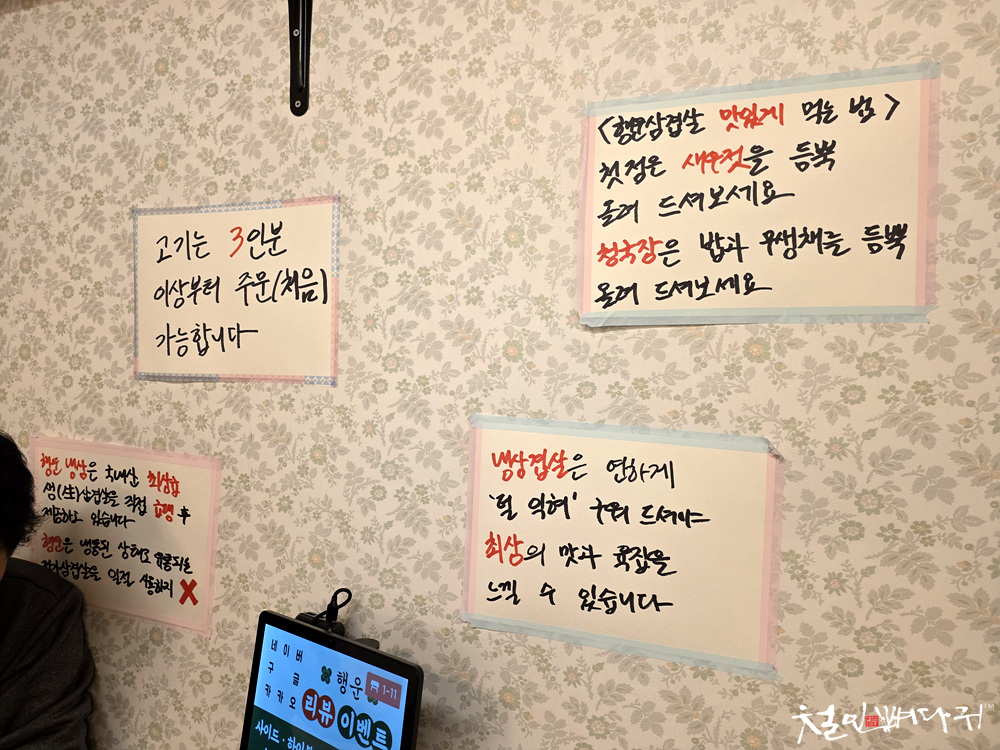 <행운삼겹살 맛있게 먹는 법>
첫점은 새우젓을 듬뿍
올려 드셔보세요
청국장은 밥과 무생채를 듬뿍
올려 드셔보세요
고기는 3인분
이상부터 주문(처음)
가능합니다
냉삼겹살은 연하게
'덜 익혀' 구워 드셔야
최상의 맛과 육즙을
느낄 수 있습니다
행운냉삼은 국내산 최상급
생(生)삼겹살을 직접 급랭 후
제공하고 있습니다
행운은 냉동된 상태로 유통되는
삼겹살을 일절 사용하지 X
네이버
구글
카카오
행운
1-11
리뷰이벤트
사이드·하이
철인뻐다귀